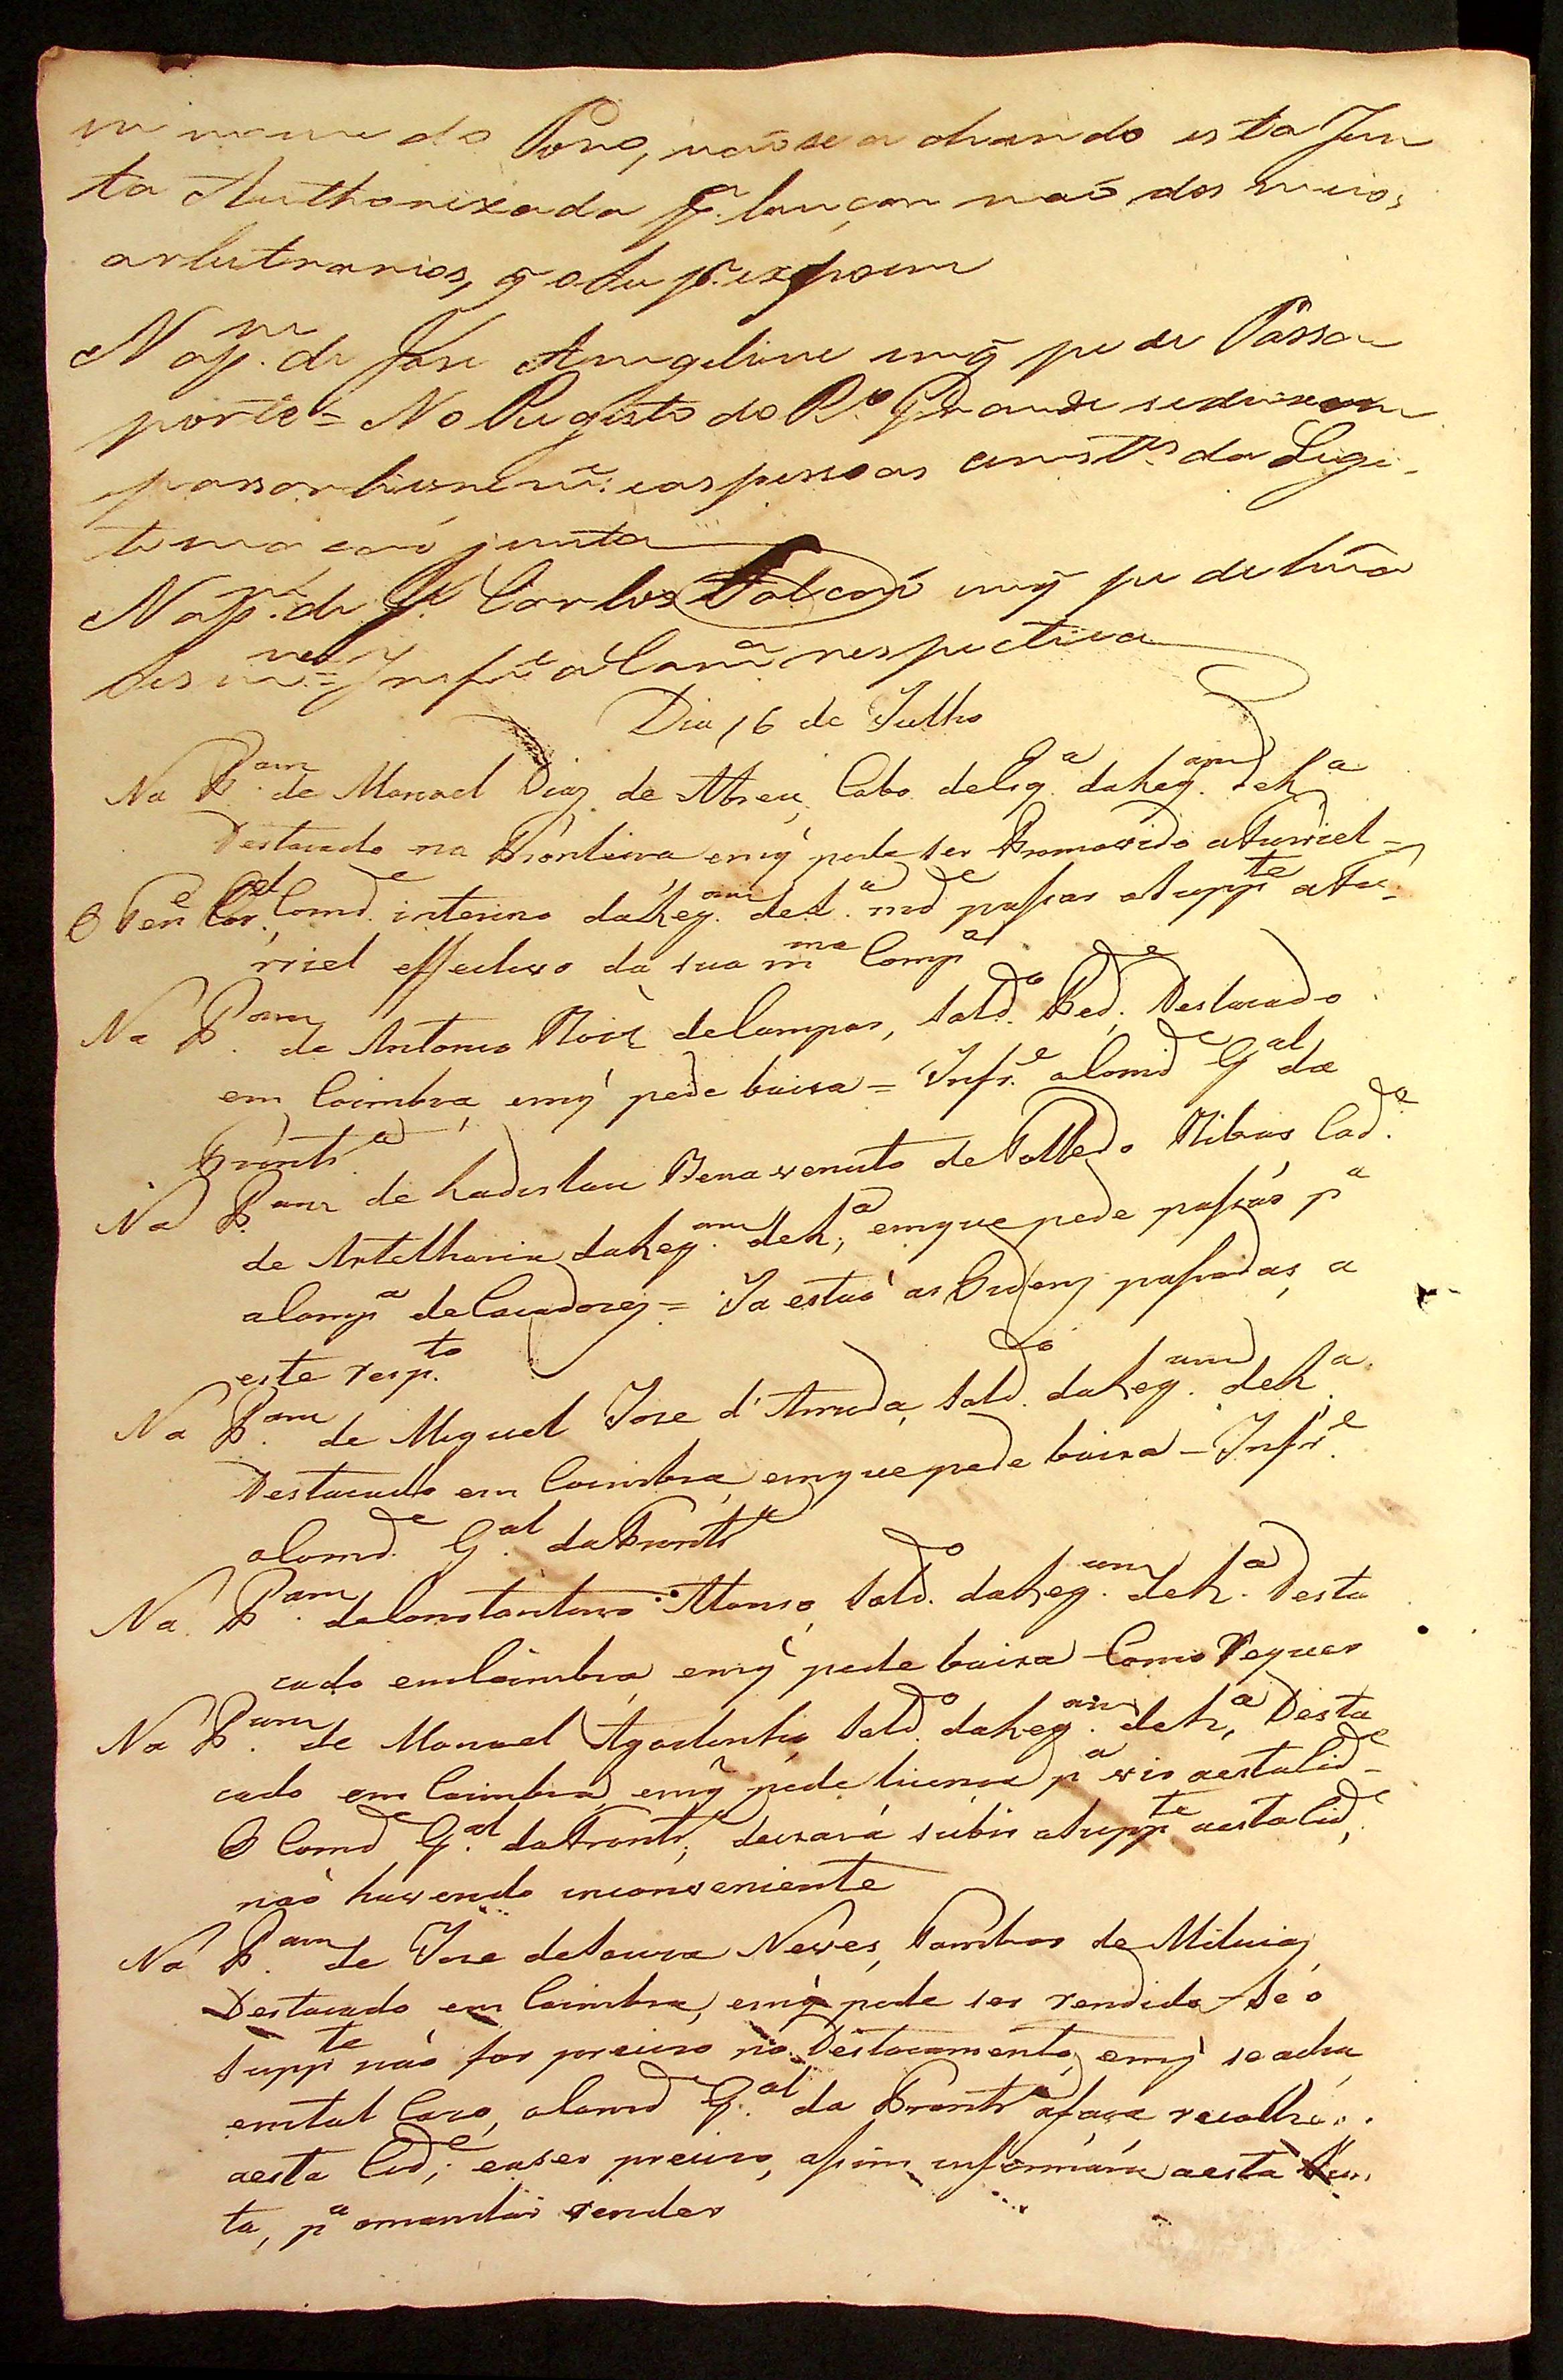 em nome do Povo, naõ se achando esta Jun
ta Authorizada p.ª lançar maõ dos meios
arbitrarios, q̃ o Sup.e expoem
Na p.am de Jose Angelino em q̃ pede Passa
porte = No Registo do R.º Grande se deixem
passar livrem.e as pessoas const.es da Legi-
timaçaõ junta
Na p.am de J.e Carlos Falcaõ em q̃ pede huã
Infr.e a Camr.ª respectiva
Dia 16 de Julho
Na P.am de Manoel Diaz de Abreu, Cabo de Lig.ª da Leg.am de L.ª
Destacado na Fronteira emq' pede ser Promovido a Furriel =
O Ten.e Cor.el Comd.e interino da Leg.am de L.ª md.e passar o Supp.te a Fu-
rriel effectivo da sua m.ma Comp.ª
Na P.am de Antonio Roiz de Campos, Sold.º Ped. Destacado
em Coimbra, emq' pede baixa = Infr.e o Comd.e G.al da
Frontr.ª
Na P.am de Ladislau Benavenuto de Tolledo Ribas Cad.e
de Artelharia da Leg.am de L.ª, emque pede passar p.ª
a Comp.ª de Cacadores = Ja estaõ as Ordens passadas, a
este resp.to
Na P.am de Miguel Jose d'Arruda, Sold.º da Leg.am de L.ª
Destacado em Coimbra, emque pede baixa - Infr.e
o Comd.e G.al da Frontr.ª
Na P.am de Constantino Afonso, Sold.º da Leg.am de L.ª Desta
cado em Coimbra, emq' pede baixa - Como Requer
Na P.am de Manoel Agostinho, Sold.º da Leg.am de L.ª, Desta
cado em Coimbra, emq̃ pede licensa p.ª vir aesta Cid.e -
O Comd.e G.al da Frontr.ª, deixará subir o Supp.te aesta Cid.e,
naõ havendo inconveniente
Na P.am de Jose de Souza Neves, Tambor de Milicias,
Destacado em Coimbra, emq̃ pede ser rendido - Se o
Supp.te naõ for preciso no Destacamento, emq' se acha,
emtal Cazo, o Comd.e G.al da Frontr.ª o faça recolher
aesta Cid.e; easer preciso, assim informára aesta Jun
ta, p.ª omandar render